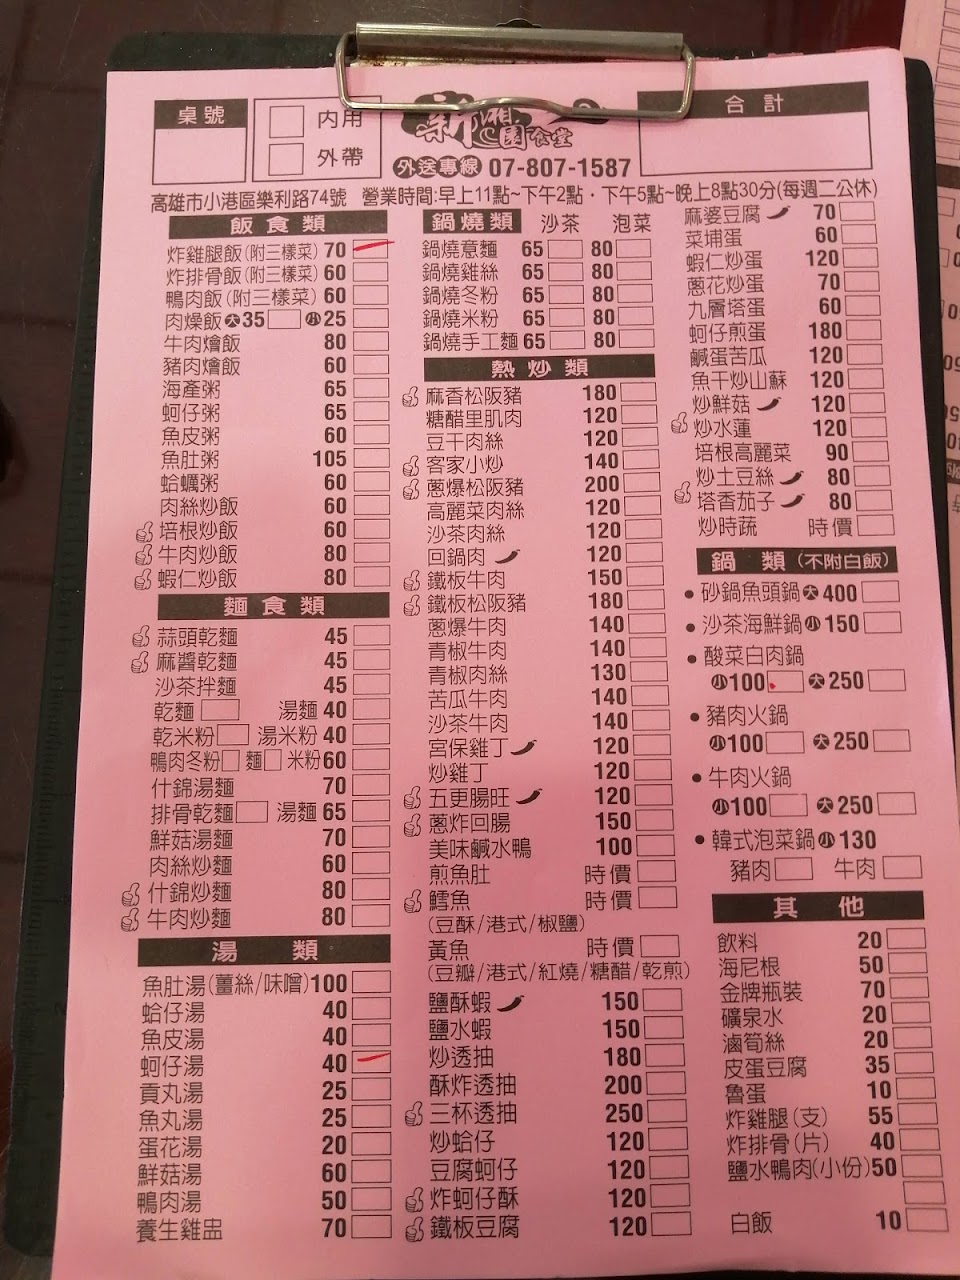 桌號
內用
外帶
新湘園食堂
合計
外送專線 07-807-1587
高雄市小港區樂利路74號 營業時間:早上11點~下午2點．下午5點~晚上8點30分(每週二公休)
飯食類
炸雞腿飯(附三樣菜) 70
炸排骨飯(附三樣菜) 60
鴨肉飯(附三樣菜) 60
肉燥飯 大35 小25
牛肉燴飯 80
豬肉燴飯 60
海產粥 65
蚵仔粥 65
魚皮粥 60
魚肚粥 105
蛤蠣粥 60
肉絲炒飯 60
培根炒飯 60
牛肉炒飯 80
蝦仁炒飯 80
麵食類
蒜頭乾麵 45
麻醬乾麵 45
沙茶拌麵 45
乾麵 湯麵 40
乾米粉 湯米粉 40
鴨肉冬粉 麵 米粉 60
什錦湯麵 70
排骨乾麵 湯麵 65
鮮菇湯麵 70
肉絲炒麵 60
什錦炒麵 80
牛肉炒麵 80
湯類
魚肚湯(薑絲/味噌) 100
蛤仔湯 40
魚皮湯 40
蚵仔湯 40
貢丸湯 25
魚丸湯 25
蛋花湯 20
鮮菇湯 60
鴨肉湯 50
養生雞盅 70
鍋燒類 沙茶 泡菜
鍋燒意麵 65 80
鍋燒雞絲 65 80
鍋燒冬粉 65 80
鍋燒米粉 65 80
鍋燒手工麵 65 80
熱炒類
麻香松阪豬 180
糖醋里肌肉 120
豆干肉絲 120
客家小炒 140
蔥爆松阪豬 200
高麗菜肉絲 120
沙茶肉絲 120
回鍋肉 120
鐵板牛肉 150
鐵板松阪豬 180
蔥爆牛肉 140
青椒牛肉 140
青椒肉絲 130
苦瓜牛肉 140
沙茶牛肉 140
宮保雞丁 120
炒雞丁 120
五更腸旺 120
蔥炸回腸 150
美味鹹水鴨 100
煎魚肚 時價
鱈魚 時價
(豆酥/港式/椒鹽)
黃魚 時價
(豆瓣/港式/紅燒/糖醋/乾煎)
鹽酥蝦 150
鹽水蝦 150
炒透抽 180
酥炸透抽 200
三杯透抽 250
炒蛤仔 120
豆腐蚵仔 120
炸蚵仔酥 120
鐵板豆腐 120
麻婆豆腐 70
菜埔蛋 60
蝦仁炒蛋 120
蔥花炒蛋 70
九層塔蛋 60
蚵仔煎蛋 180
鹹蛋苦瓜 120
魚干炒山蘇 120
炒鮮菇 120
炒水蓮 120
培根高麗菜 90
炒土豆絲 80
塔香茄子 80
炒時蔬 時價
鍋類(不附白飯)
•砂鍋魚頭鍋 大 400
•沙茶海鮮鍋 小 150
•酸菜白肉鍋
小100 大250
•豬肉火鍋
小100 大250
•牛肉火鍋
小100 大250
•韓式泡菜鍋 小 130
豬肉 牛肉
其他
飲料 20
海尼根 50
金牌瓶裝 70
礦泉水 20
滷筍絲 20
皮蛋豆腐 35
魯蛋 10
炸雞腿(支) 55
炸排骨(片) 40
鹽水鴨肉(小份) 50
白飯 10